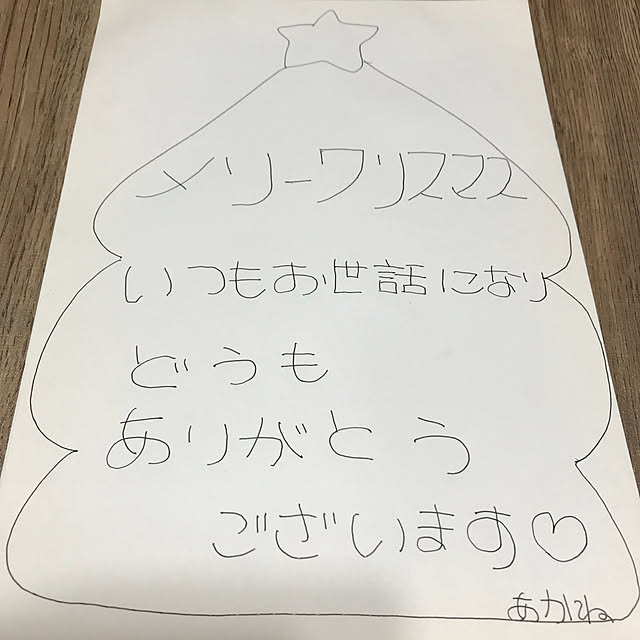 メリーワリスマス
いつもお世話になり
どうも
ありがとう
ございます♡
あかね